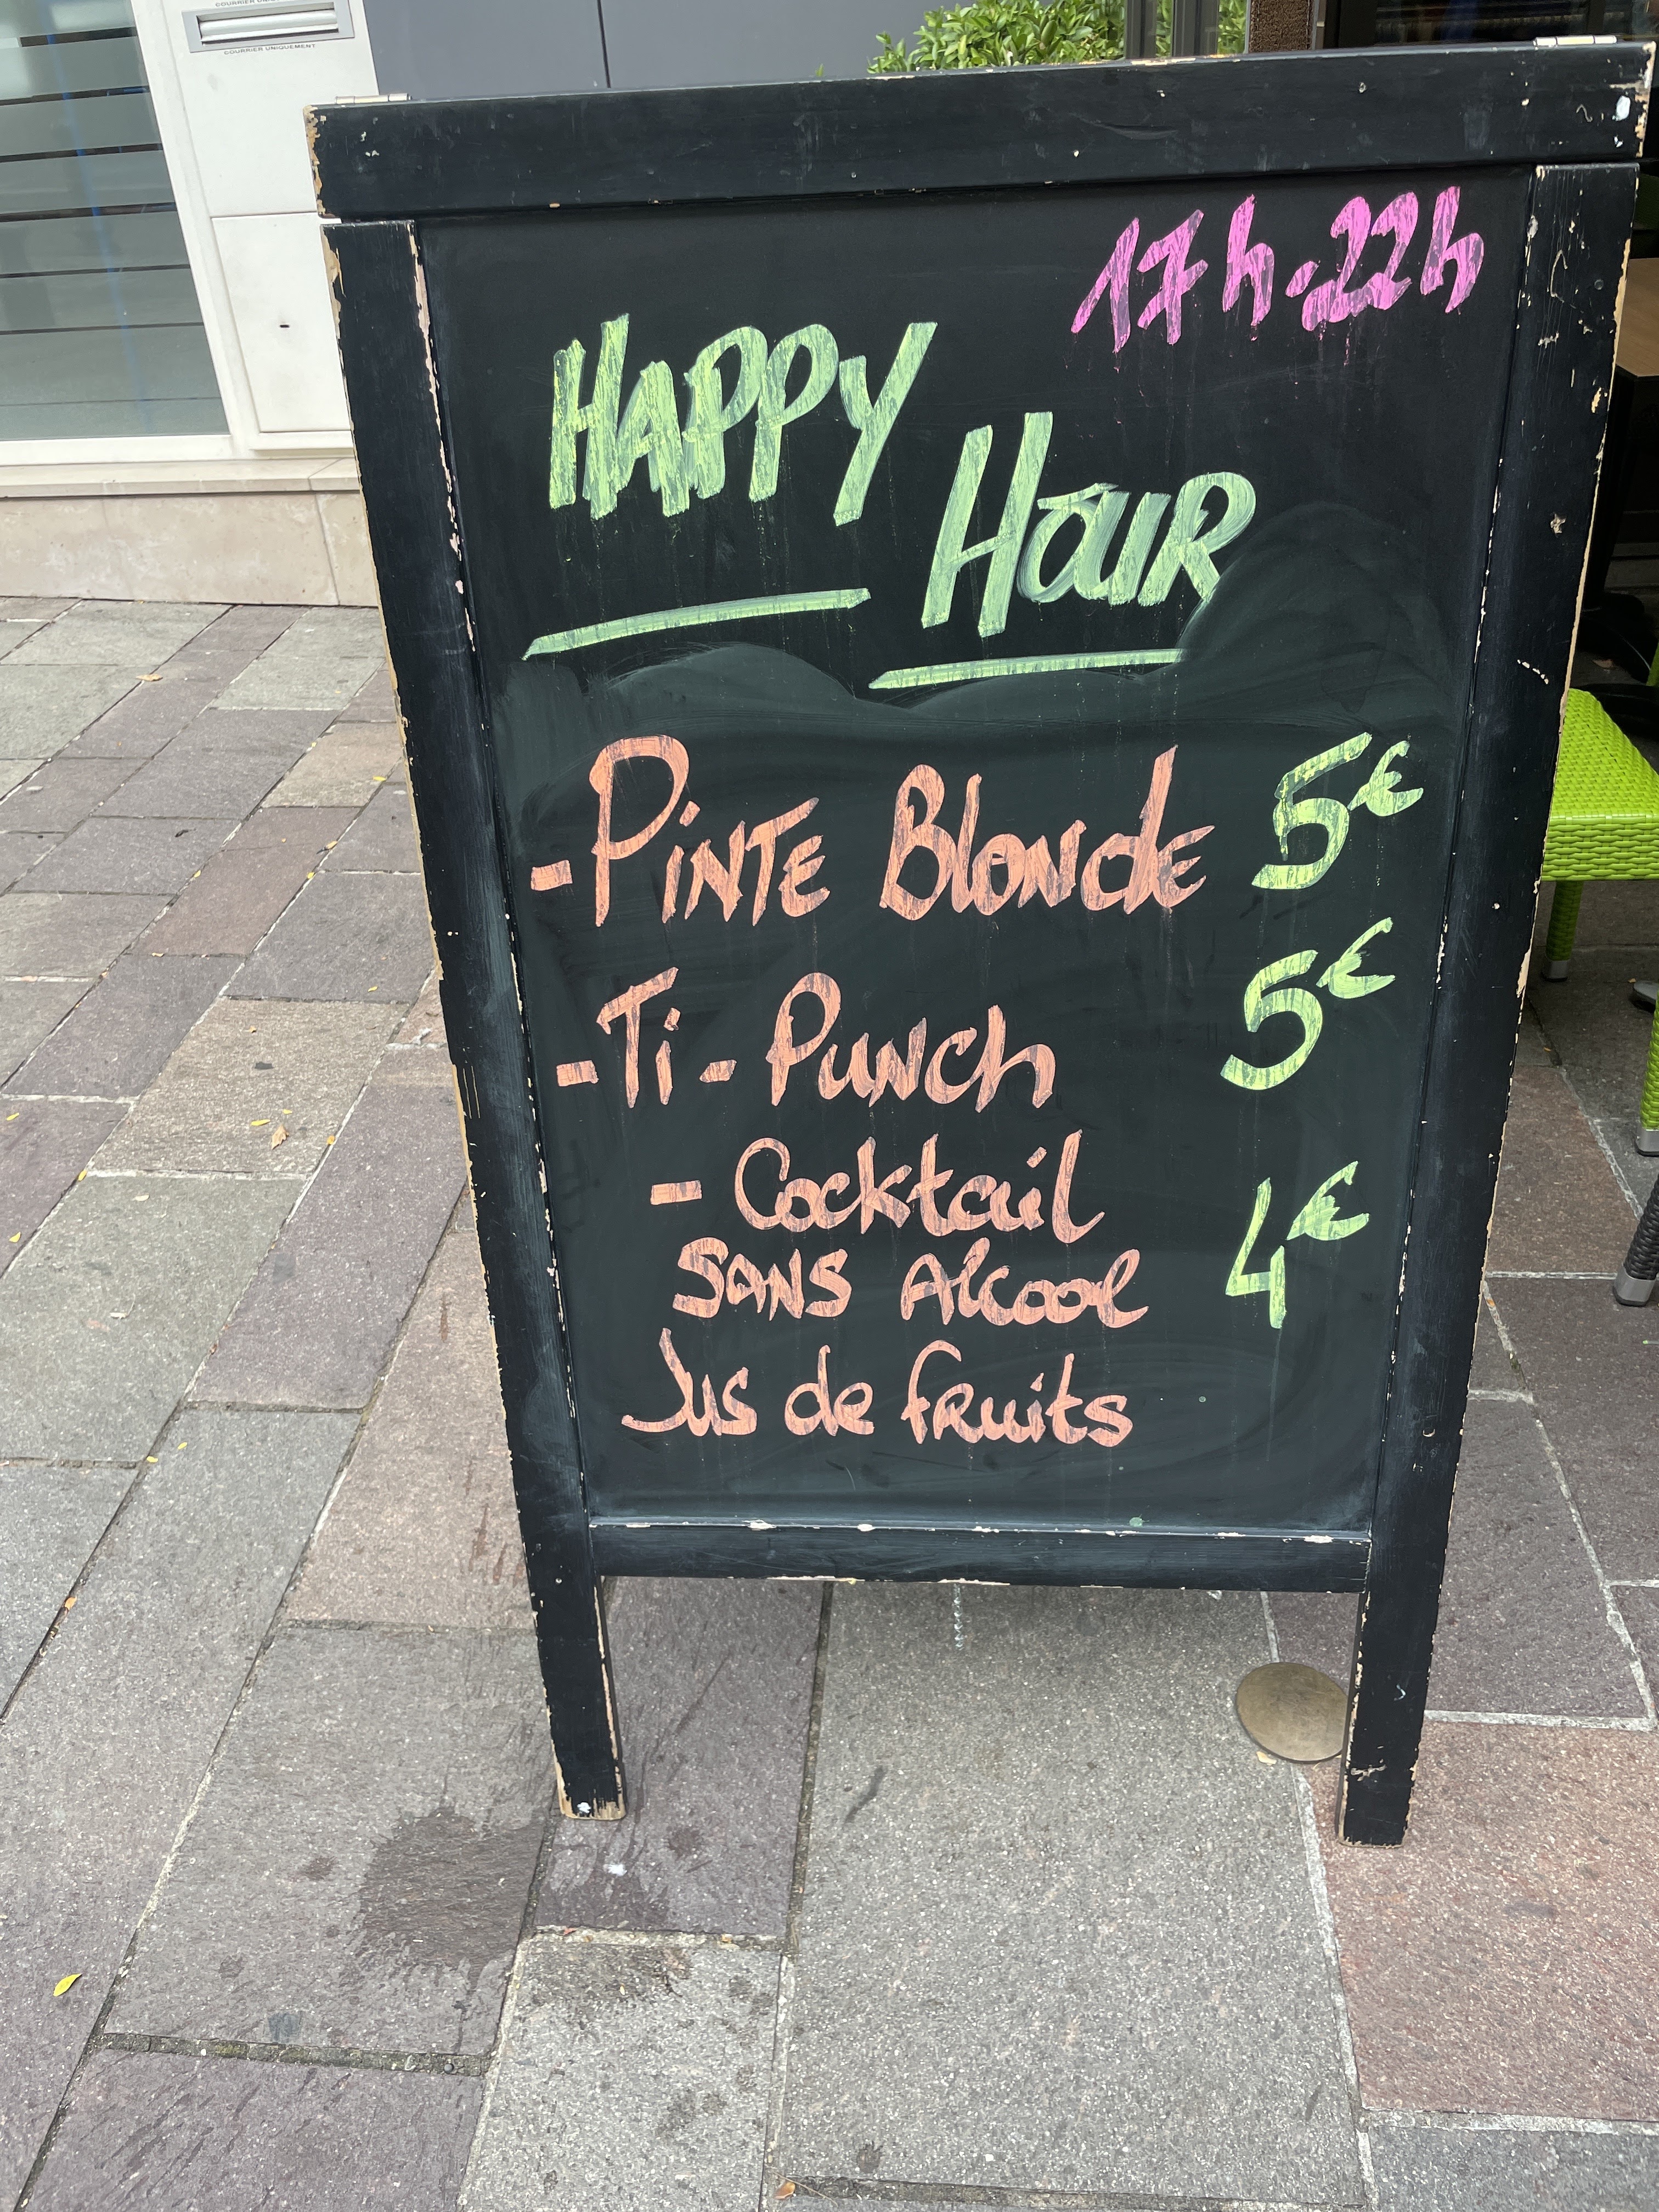 COURRIER UNIQUEMENT
17h-22h
HAPPY
HOUR
- PINTE BlONdE 5€
- Ti - PUNCh 5€
- Cocktail
SANS Alcool 4€
Jus de fRuits